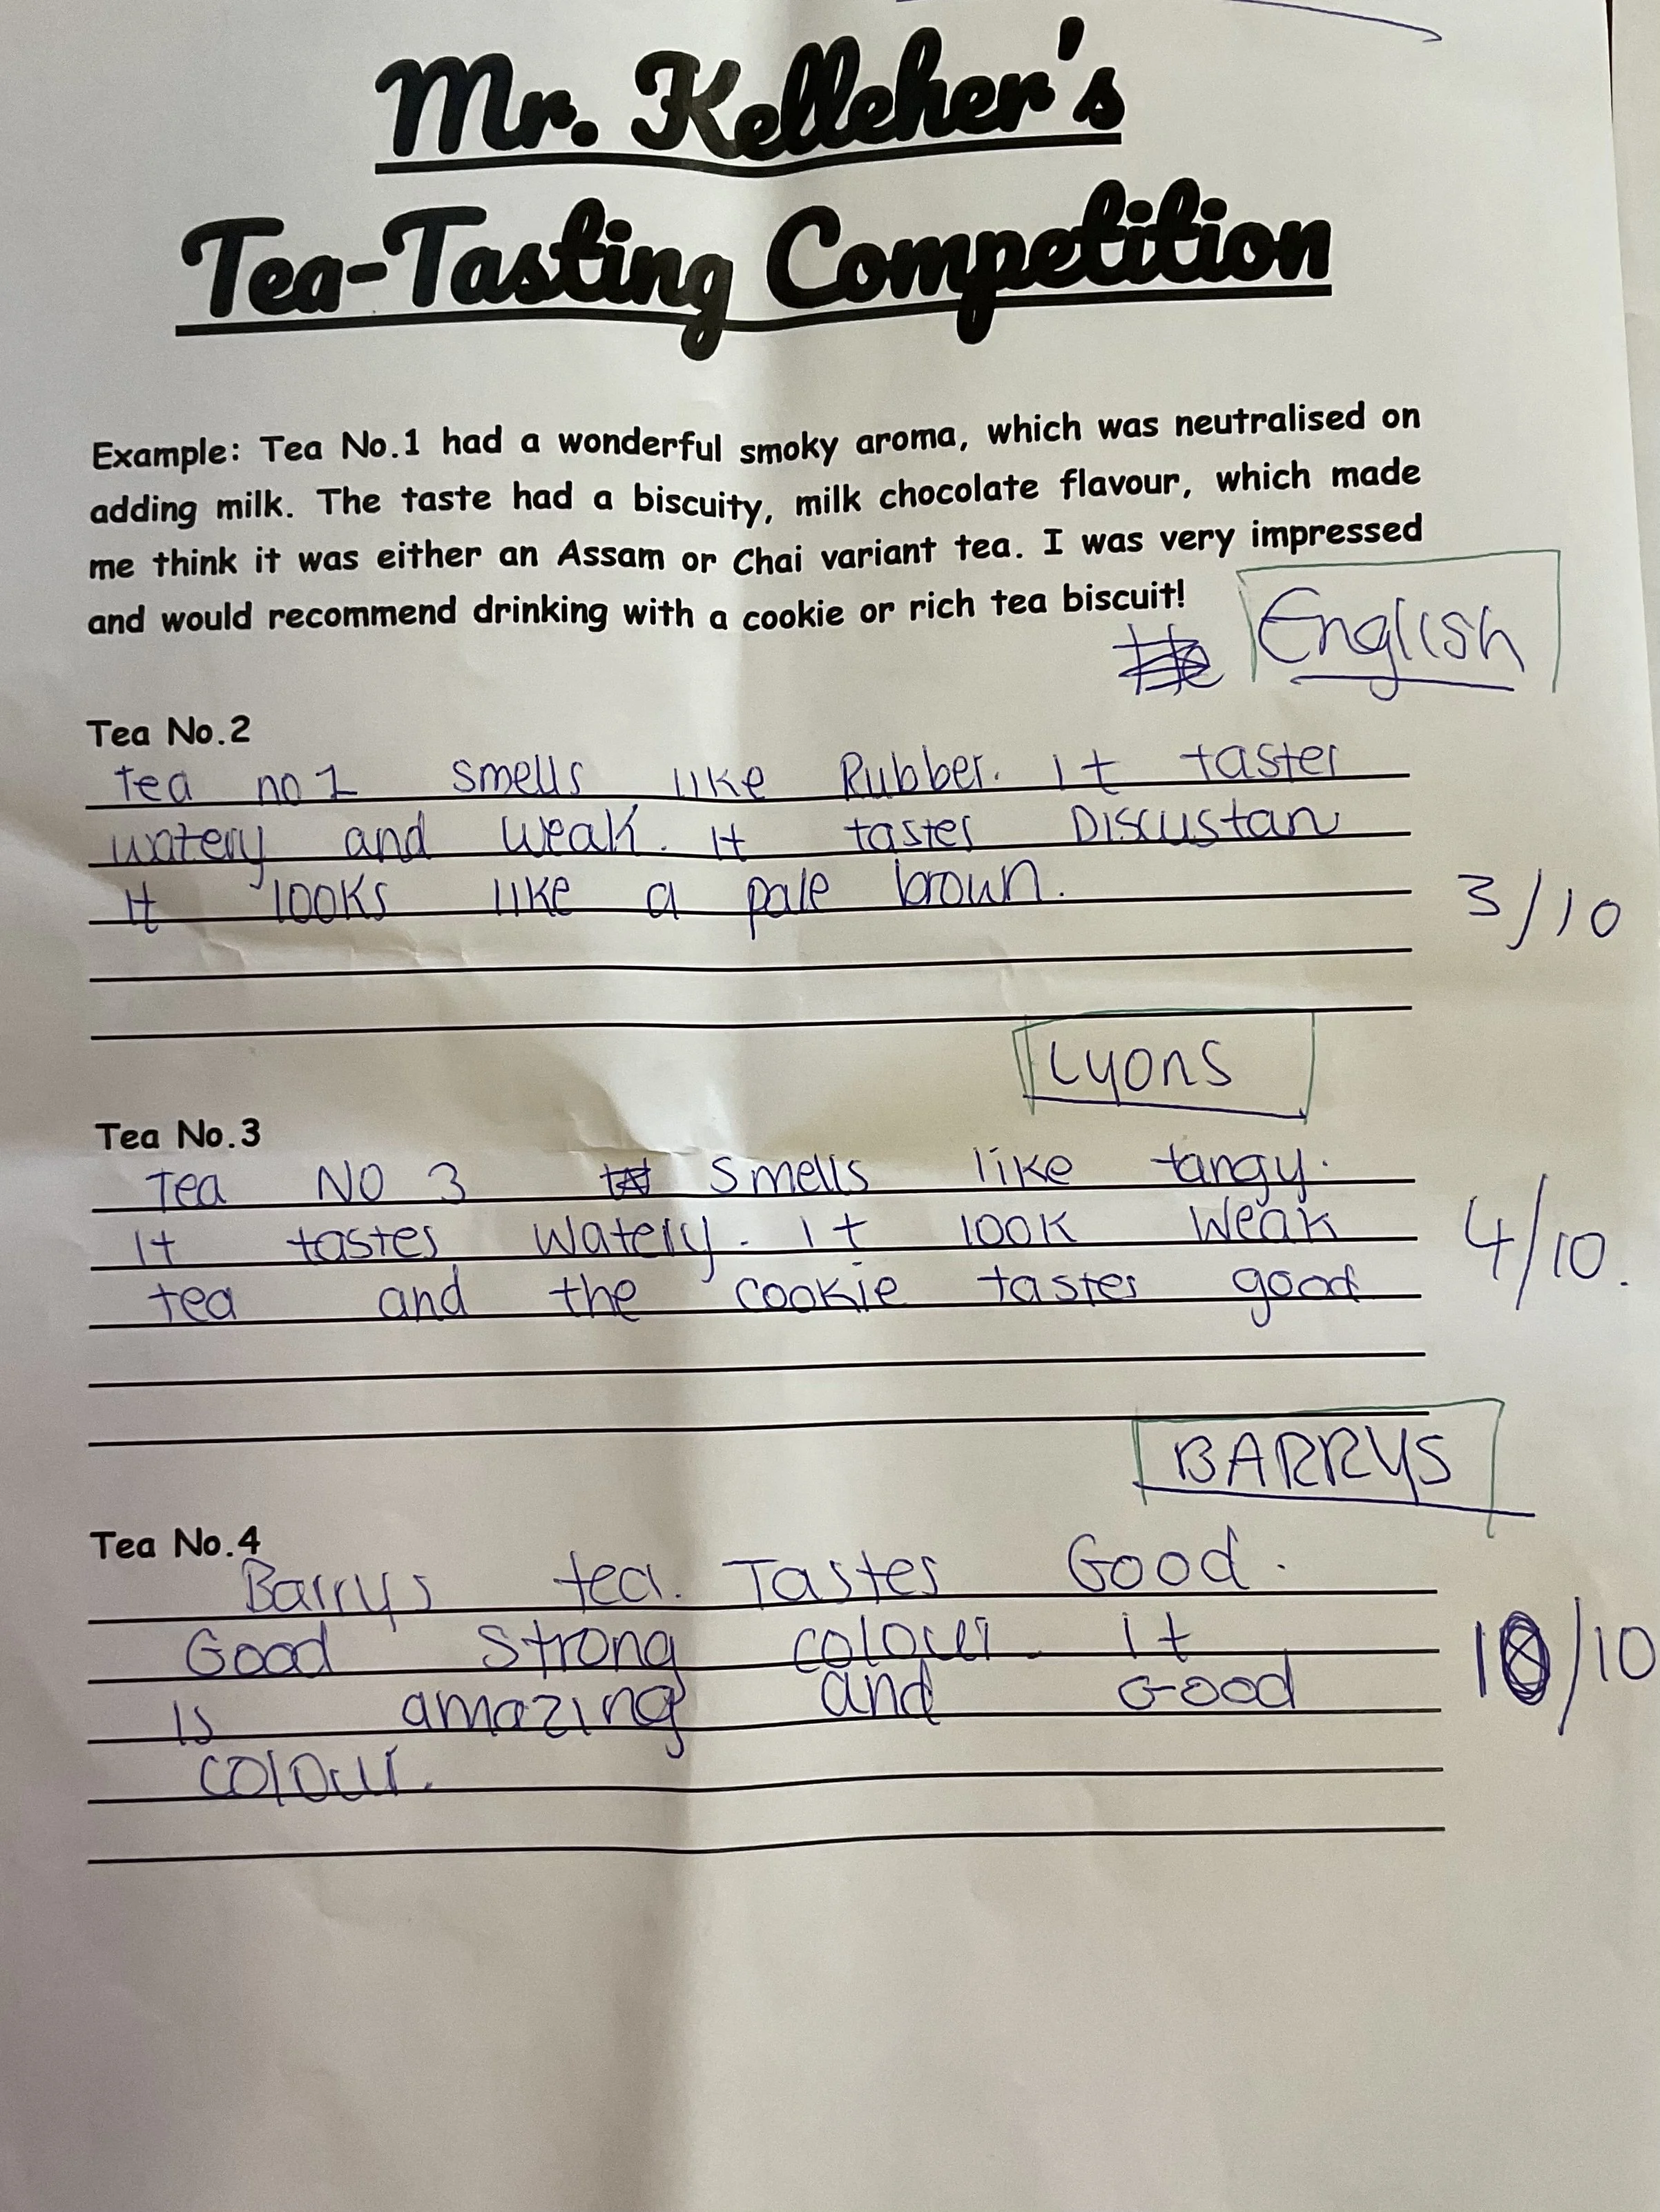 Mr. Kelleher's
Tea-Tasting Competition
Example: Tea No.1 had a wonderful smoky aroma, which was neutralised on
adding milk. The taste had a biscuity, milk chocolate flavour, which made
me think it was either an Assam or Chai variant tea. I was very impressed
and would recommend drinking with a cookie or rich tea biscuit!
English
Tea No.2
tea no 1 smells like Rubber. It tastes
watery and weak. It tastes Discustan
It looks like a pale brown.
3/10
Lyons
Tea No.3
Tea NO 3 smells like tangy.
It tastes watery. It look weak
tea and the cookie tastes good
4/10.
BARRYS
Tea No.4
Barrys tea. Tastes Good.
Good strong colour. It
is amazing and Good
colour.
10/10